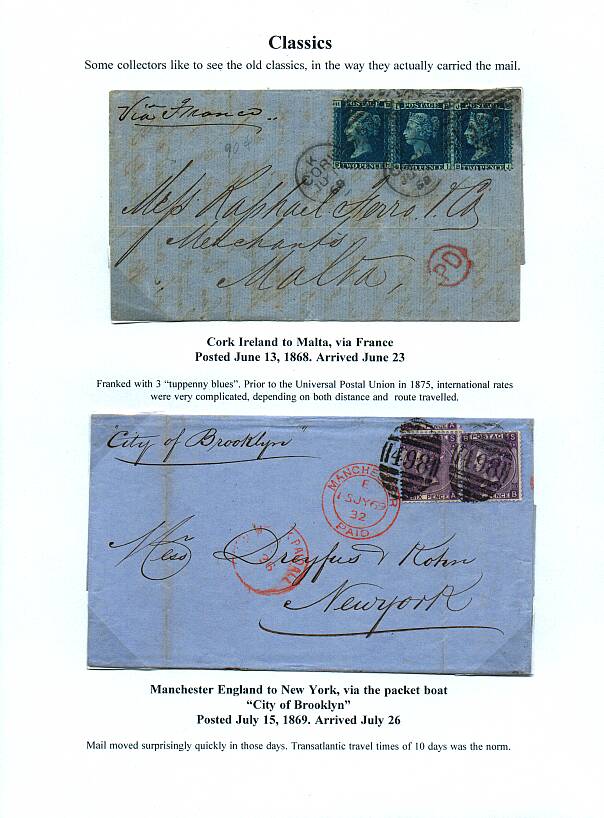 Classics
Some collectors like to see the old classics, in the way they actually carried the mail.
Via France
POSTAGE POSTAGE POSTAGE
TWO PENCE TWO PENCE TWO PENCE
CORK
68
68
Messrs Raphael Ferro & Co
Merchants
Malta,
PD
Cork Ireland to Malta, via France
Posted June 13, 1868. Arrived June 23
Franked with 3 “tuppenny blues”. Prior to the Universal Postal Union in 1875, international rates
were very complicated, depending on both distance and route travelled.
"City of Brooklyn"
POSTAGE
498 498
SIX PENCE PENCE
MANCHESTER
F
15 JY 69
32
PAID
PAID ALL
26
Mess Dreyfus & Kohn
Newyork
Manchester England to New York, via the packet boat
“City of Brooklyn”
Posted July 15, 1869. Arrived July 26
Mail moved surprisingly quickly in those days. Transatlantic travel times of 10 days was the norm.